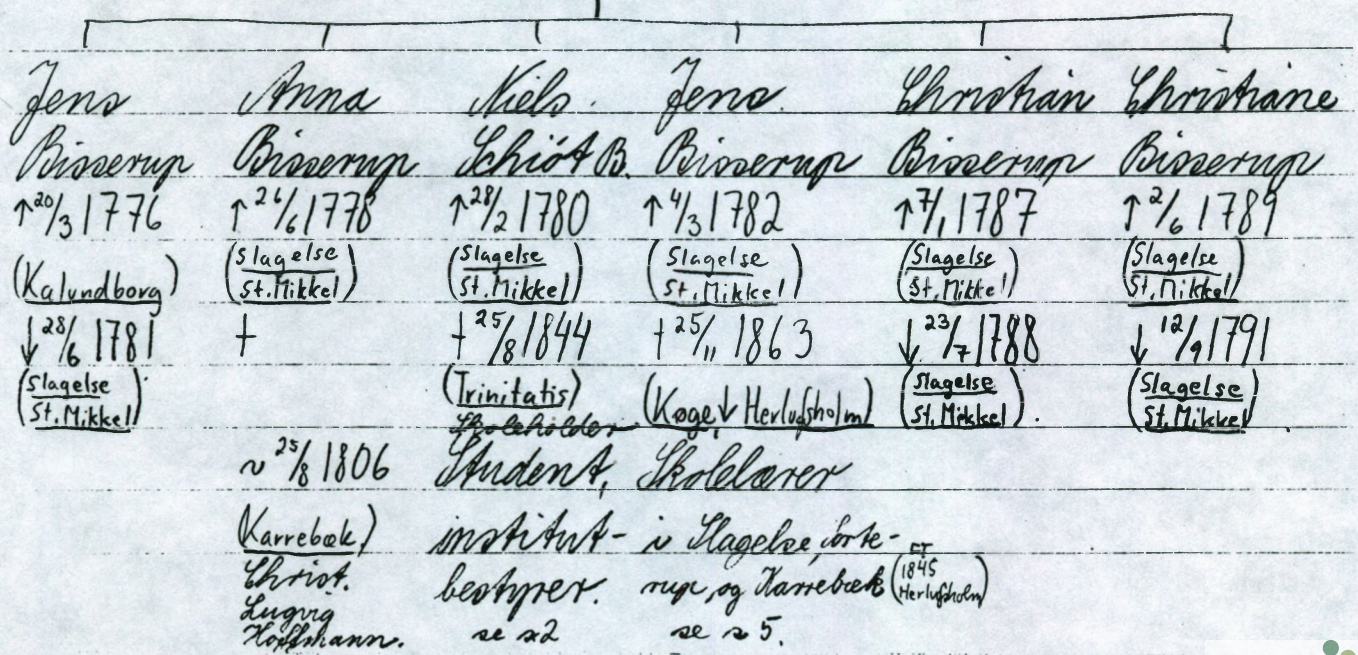 Jens
Bisserup
↑ 20/3 1776
(Kalundborg)
↓ 28/6 1781
(Slagelse
St. Mikkel)
Anna
Bisserup
↑ 26/6 1778
(Slagelse
St. Mikkel)
†
~ 25/8 1806
(Karrebæk)
Christ.
Lugvig
Hoffmann.
Niels
Schiöt B.
↑ 28/2 1780
(Slagelse
St. Mikkel)
† 25/8 1844
(Trinitatis)
Skoleholder
Student,
institut-
bestyrer.
se s 2
Jens
Bisserup
↑ 4/3 1782
(Slagelse
St. Mikkel)
† 25/11 1863
(Køge, ↓ Herlufsholm)
Skolelærer
i Slagelse,
rup, og Karrebæk
(FT
1845
Herlufsholm)
se s 5.
Christian
Bisserup
↑ 7/1 1787
(Slagelse
St. Mikkel)
↓ 23/7 1788
(Slagelse
St. Mikkel).
Christiane
Bisserup
↑ 2/6 1789
(Slagelse
St. Mikkel)
↓ 12/9 1791
(Slagelse
St. Mikkel)